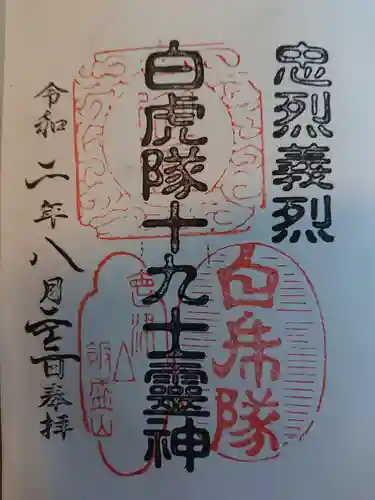 忠烈義烈
白虎隊十九士靈神
白虎隊
会津
飯盛山
令和二年八月吉日奉拝